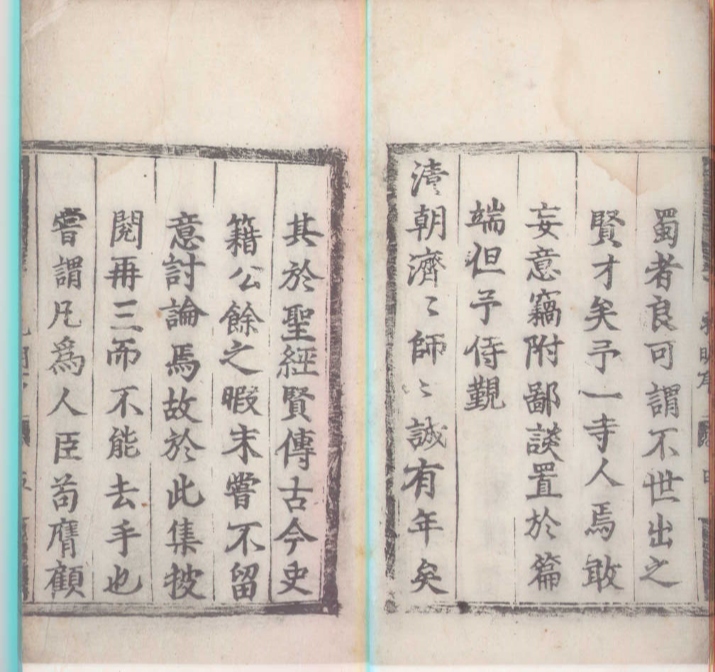 蜀者良可謂不世出之
賢才矣予一寺人焉敢
妄意竊附鄙談置於篇
端但予侍覲
清朝濟〻師〻誠有年矣
其於聖經賢傳古今史
籍公餘之暇未嘗不留
意討論焉故於此集披
閱再三而不能去手也
嘗謂凡爲人臣苟膺顧